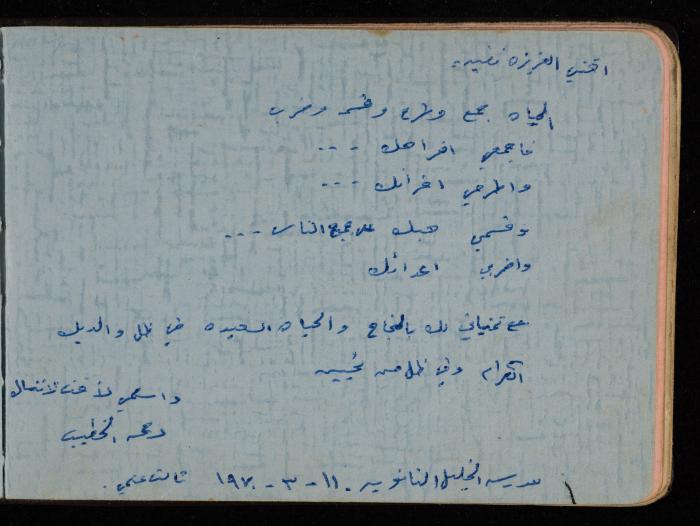 اختي العزيزه
الحياه جمع وطرح وقسمه وضرب
فاجمعي افراحك ---
واطرحي احزانك ---
وقسمي حبك على جميع الناس ---
واضربي اعدائك
مع تمنياتي لك بالنجاح والحياه السعيده في ظل والديك
الكرام وفي ظل من تحبين
واسلمي لأختك
الخطيب
مدرسه الخليل الثانويه . ١١ - ٣ - ١٩٧٠ ثالث علمي .